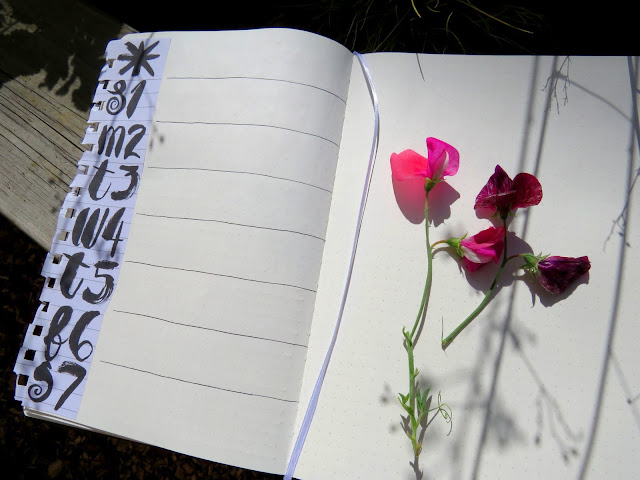 *
S1
m2
t3
W4
t5
f6
S7